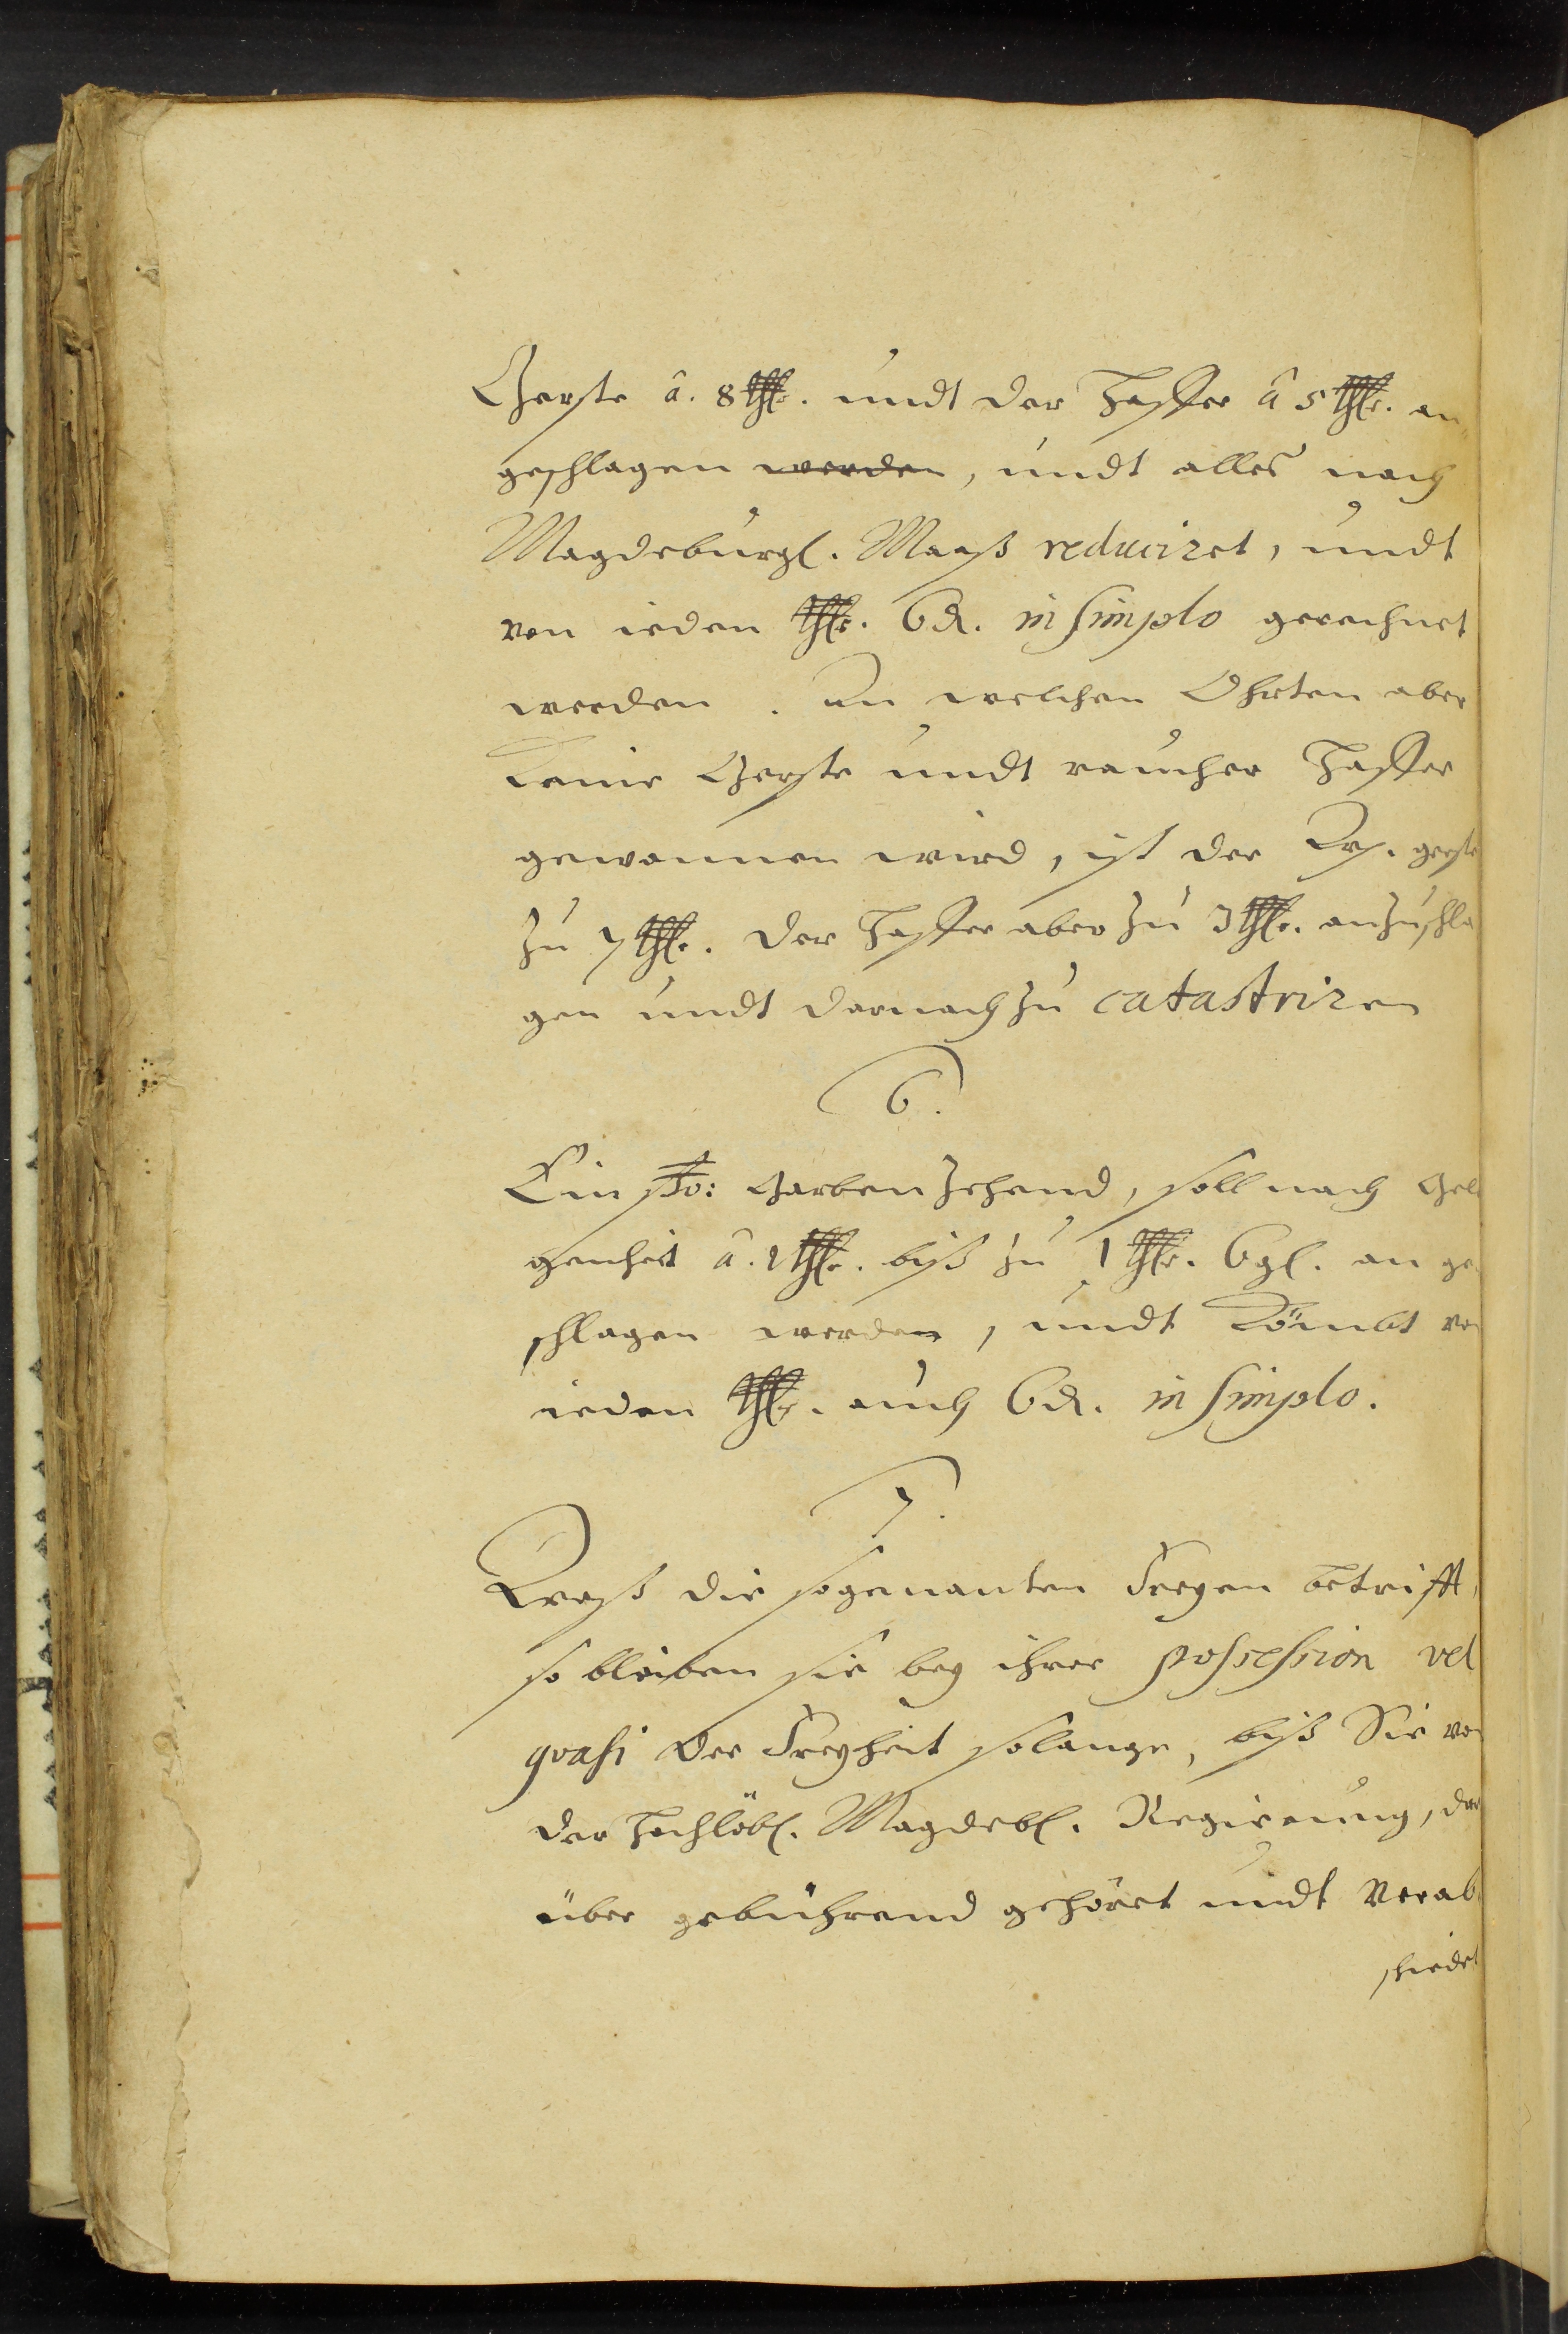 Gerste â. 8 thlr. undt der Haffer â 5 thlr. an
geschlagen werden, undt alles nach
Magdeburgl. Maaß reduciret, undt
von ieden thlr. 6 d. in simplo gerechnet
werden. An welchen Ohrten aber
keine Gerste undt raucher Haffer
gewonnen wird, ist der Wsp. gerste
zu 7 thlr. der Haffer aber zu 3 thlr. anzuschla
gen undt darnach zu catastriren
6.
Ein Garben Zehend, soll nach Gele
genheit â. 1 thlr. biß zu 1 thlr. 6 gl. an ge
schlagen werden, undt kömbt von
ieden thlr. auch 6 d. in simplo.
7.
Waß die sogenanten Freyen betrifft,
so bleiben sie bey ihrer possession vel
quasi der Freyheit solange, biß Sie von
der Hochlöbl. Magdebl. Regirung, dar
über gebührend gehöret undt verab
schiedet